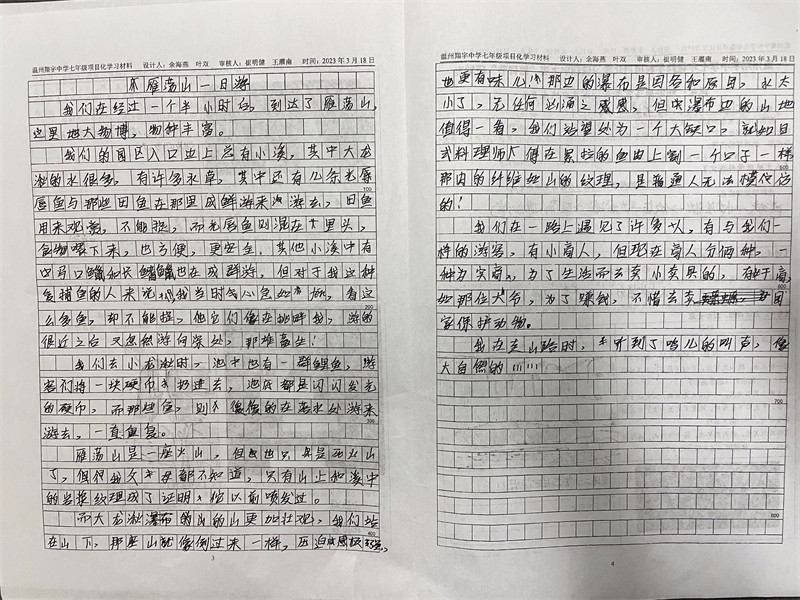 温州翔宇中学七年级项目化学习材料 设计人：余海燕 叶双 审核人：崔明健 王雁南 时间：2023年3月18日
雁荡山一日游
我们在经过一个半小时后，到达了雁荡山，
这里地大物博，物种丰富。
我们的园区入口边上总有小溪，其中大龙
湫的水很多，有许多水草，其中还有几条光唇
100
唇鱼与那些田鱼在那里成群游来游去，田鱼
用来观赏，不能捉，而光唇鱼则混在里头，
食物喂下来，也方便，更安全。其他小溪中有
也在成群游，但对于我这种
爱捕鱼的人来说，我当时气心急，看这
200
么多鱼，却不能捉，他它们像在挑衅我，游的
很近之后又忽然游向深处，那难畜生！
我们去小龙湫时，池中也有一群鲤鱼，游
客们将一块硬币扔进去，池底都是闪闪发光
的硬币，而那些鱼，则傻傻的在水处游来
300
游去，一直
雁荡山是一座火山，但也只是死火山
了，但得我父母都不知道，只有山上和溪中
的岩浆纹理成了证明，他以前喷发过。
而大龙湫瀑布的山更加壮观，我们站
400
在山下，那座山就像倒过来一样，压迫感极强，
3
温州翔宇中学七年级项目化学习材料 设计人：余海燕 叶双 审核人：崔明健 王雁南 时间：2023年3月18日
也更有味儿！那边的瀑布是因各种原因，水太
小了，无任何汹涌之威感，但瀑布边的山地
值得一角，我们站望处为一个大缺口，就如日
式料理师傅在紧拉的鱼肉上割一个口子一样
500
那肉的纤维丝山的纹理，是普通人无法模仿
的！
我们在一路上遇见了许多人，有与我们一
样的游客，有小商人，但现在商人分俩种，一
种为实商，为了生活而去卖小菜具的，有奸商，
600
如那位大爷，为了赚钱，不惜去卖国
家保护动物。
我在走山路时，听到了鸟儿的叫声，像
大自然的
700
800
4